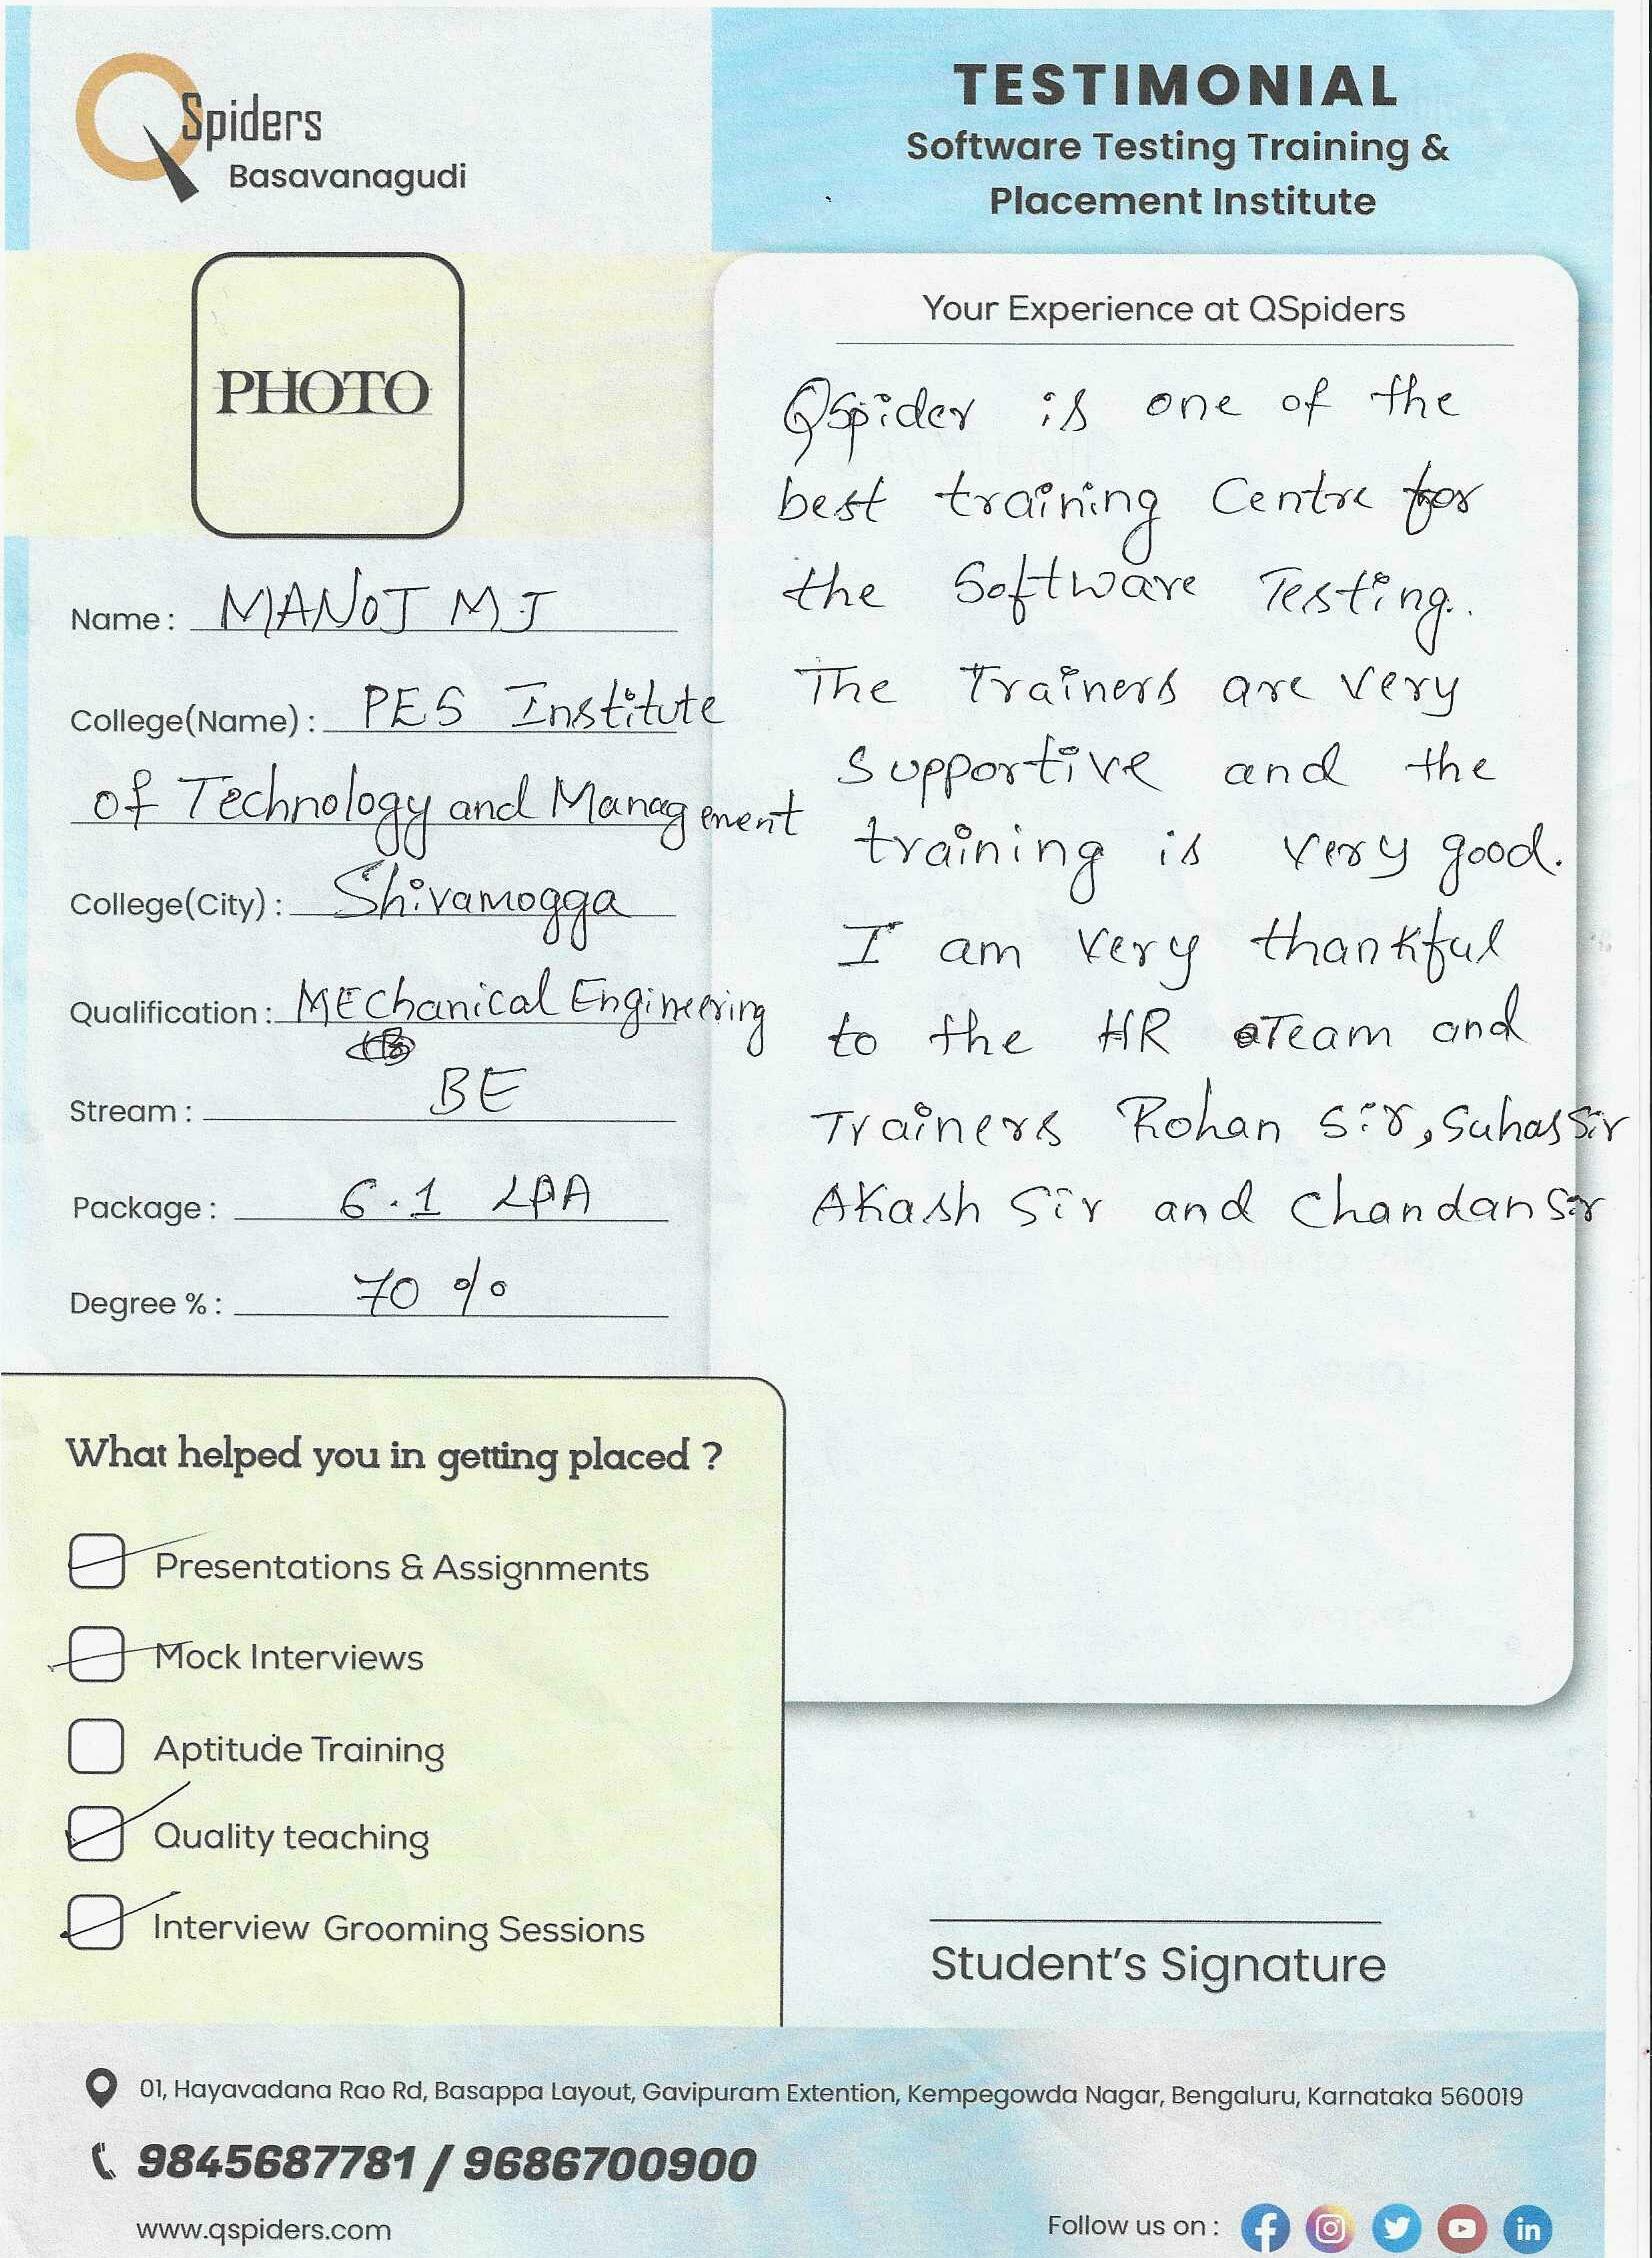 QSpiders
Basavanagudi
TESTIMONIAL
Software Testing Training &
Placement Institute
PHOTO
Name : MANOJ M J
College(Name) : PES Institute
of Technology and Management
College(City) : Shivamogga
Qualification : MEchanical Engineering
Stream : BE
Package : 6.1 LPA
Degree % : 70 %
Your Experience at QSpiders
QSpider is one of the
best training Centre for
the Software Testing.
The Trainers are very
supportive and the
training is very good.
I am very thankful
to the HR Team and
Trainers Rohan Sir, Suhas Sir
Akash Sir and Chandan Sir
What helped you in getting placed ?
Presentations & Assignments
Mock Interviews
Aptitude Training
Quality teaching
Interview Grooming Sessions
Student's Signature
01, Hayavadana Rao Rd, Basappa Layout, Gavipuram Extention, Kempegowda Nagar, Bengaluru, Karnataka 560019
9845687781 / 9686700900
www.qspiders.com
Follow us on :